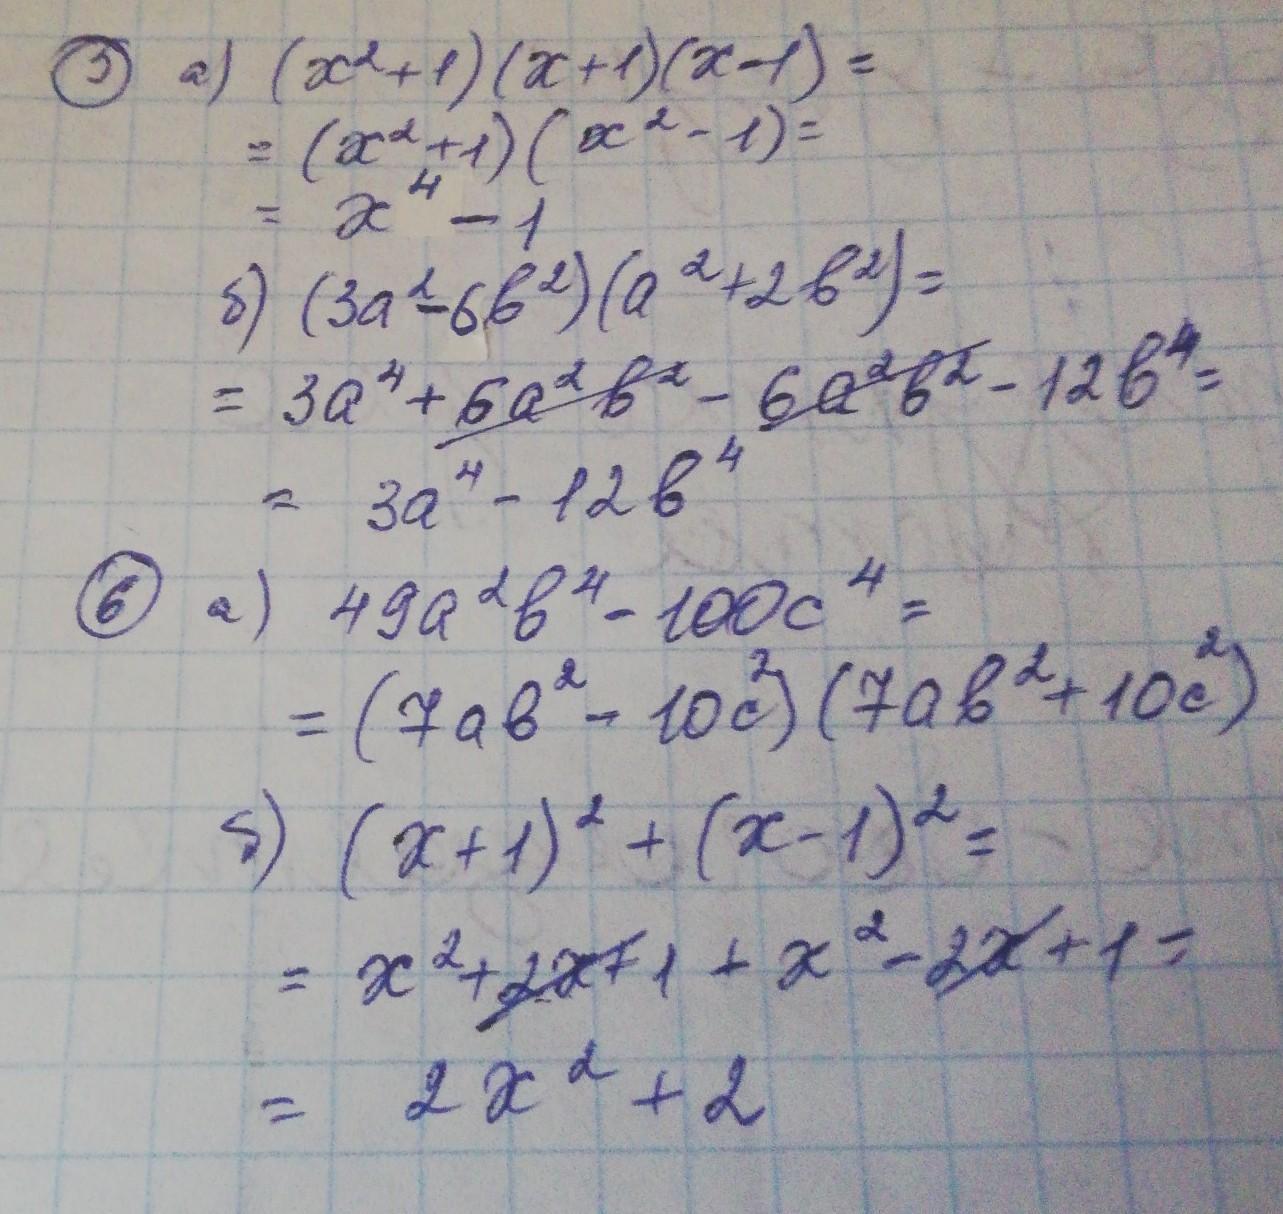 5 а) (x²+1)(x+1)(x-1)=
=(x²+1)(x²-1)=
= x⁴-1
б) (3a²-6b²)(a²+2b²)=
= 3a⁴+6a²b²-6a²b²-12b⁴=
= 3a⁴-12b⁴
6 а) 49a²b⁴-100c⁴=
=(7ab²-10c²)(7ab²+10c²)
б) (x+1)²+(x-1)²=
= x²+2x+1+x²-2x+1=
= 2x²+2